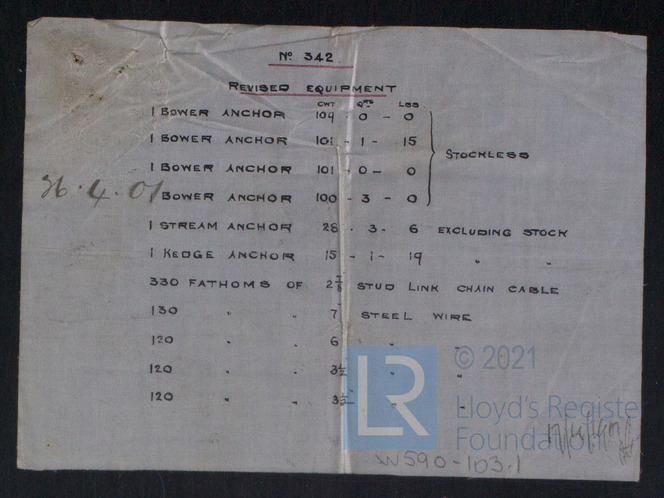 No. 342
REVISED EQUIPMENT
CWT QRS LBS
1 BOWER ANCHOR 109 - 0 - 0
1 BOWER ANCHOR 101 - 1 - 15
STOCKLESS
1 BOWER ANCHOR 101 - 0 - 0
26.4.01
1 BOWER ANCHOR 100 - 3 - 0
1 STREAM ANCHOR 28 - 3 - 6 EXCLUDING STOCK
1 KEDGE ANCHOR 15 - 1 - 19 " "
330 FATHOMS OF 2 7/8 STUD LINK CHAIN CABLE
130 " " 7 STEEL WIRE
120 " " 6 " "
120 " " 3½ " "
120 " " 3½ " "
LR
© 2021
Lloyd's Register
Foundation
W590-103.1